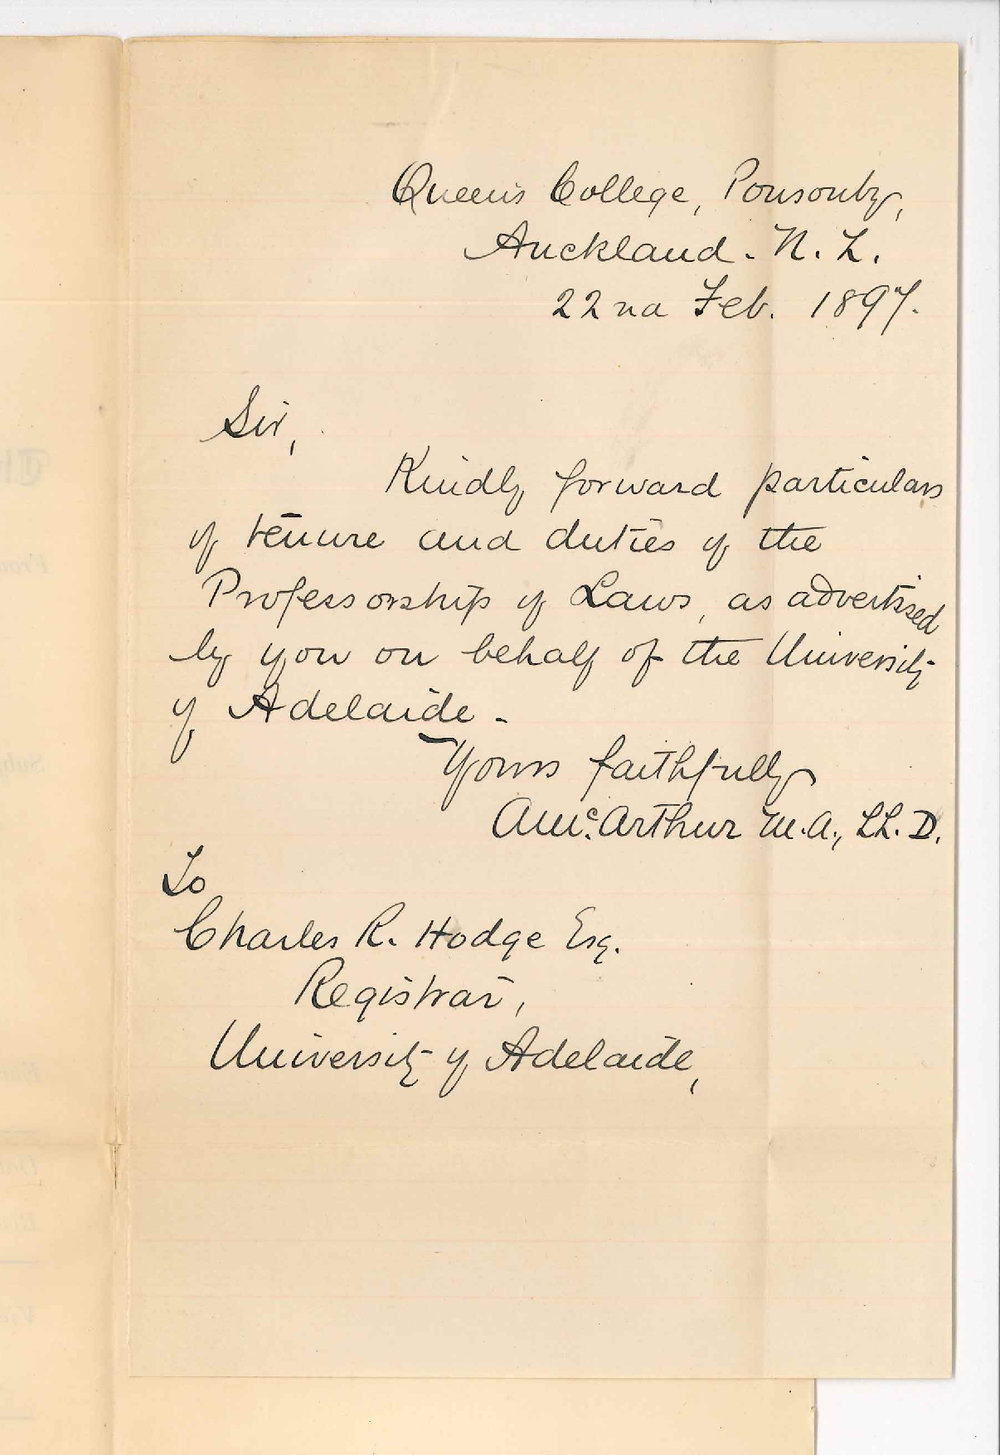 Queen's College, Ponsonby,
Auckland. N. Z.
22nd Feb. 1897.
Sir,
Kindly forward particulars
of tenure and duties of the
Professorship of Laws, as advertised
by you on behalf of the University
of Adelaide.
Yours faithfully
A McArthur M.A., LL.D.
To
Charles R. Hodge Esq.
Registrar,
University of Adelaide,